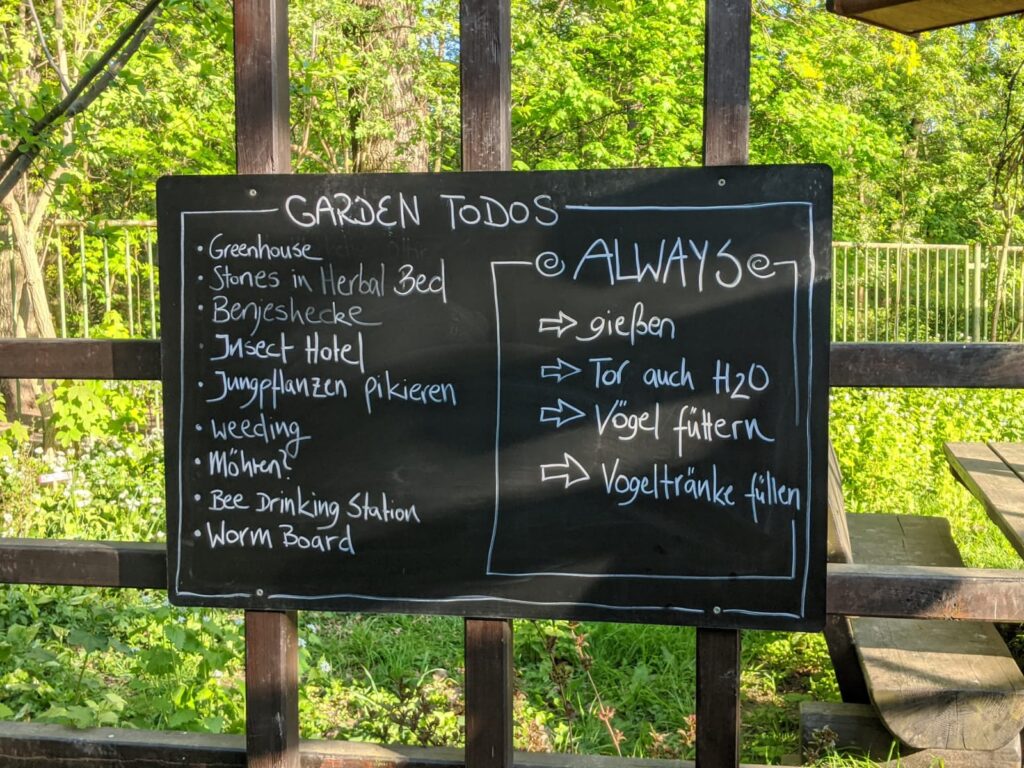 GARDEN TODOS
• Greenhouse
• Stones in Herbal Bed
• Benjeshecke
• Insect Hotel
• Jungpflanzen pikieren
• weeding
• Möhren?
• Bee Drinking Station
• Worm Board
ALWAYS
⇨ gießen
⇨ Tor auch H2O
⇨ Vögel füttern
⇨ Vogeltränke füllen